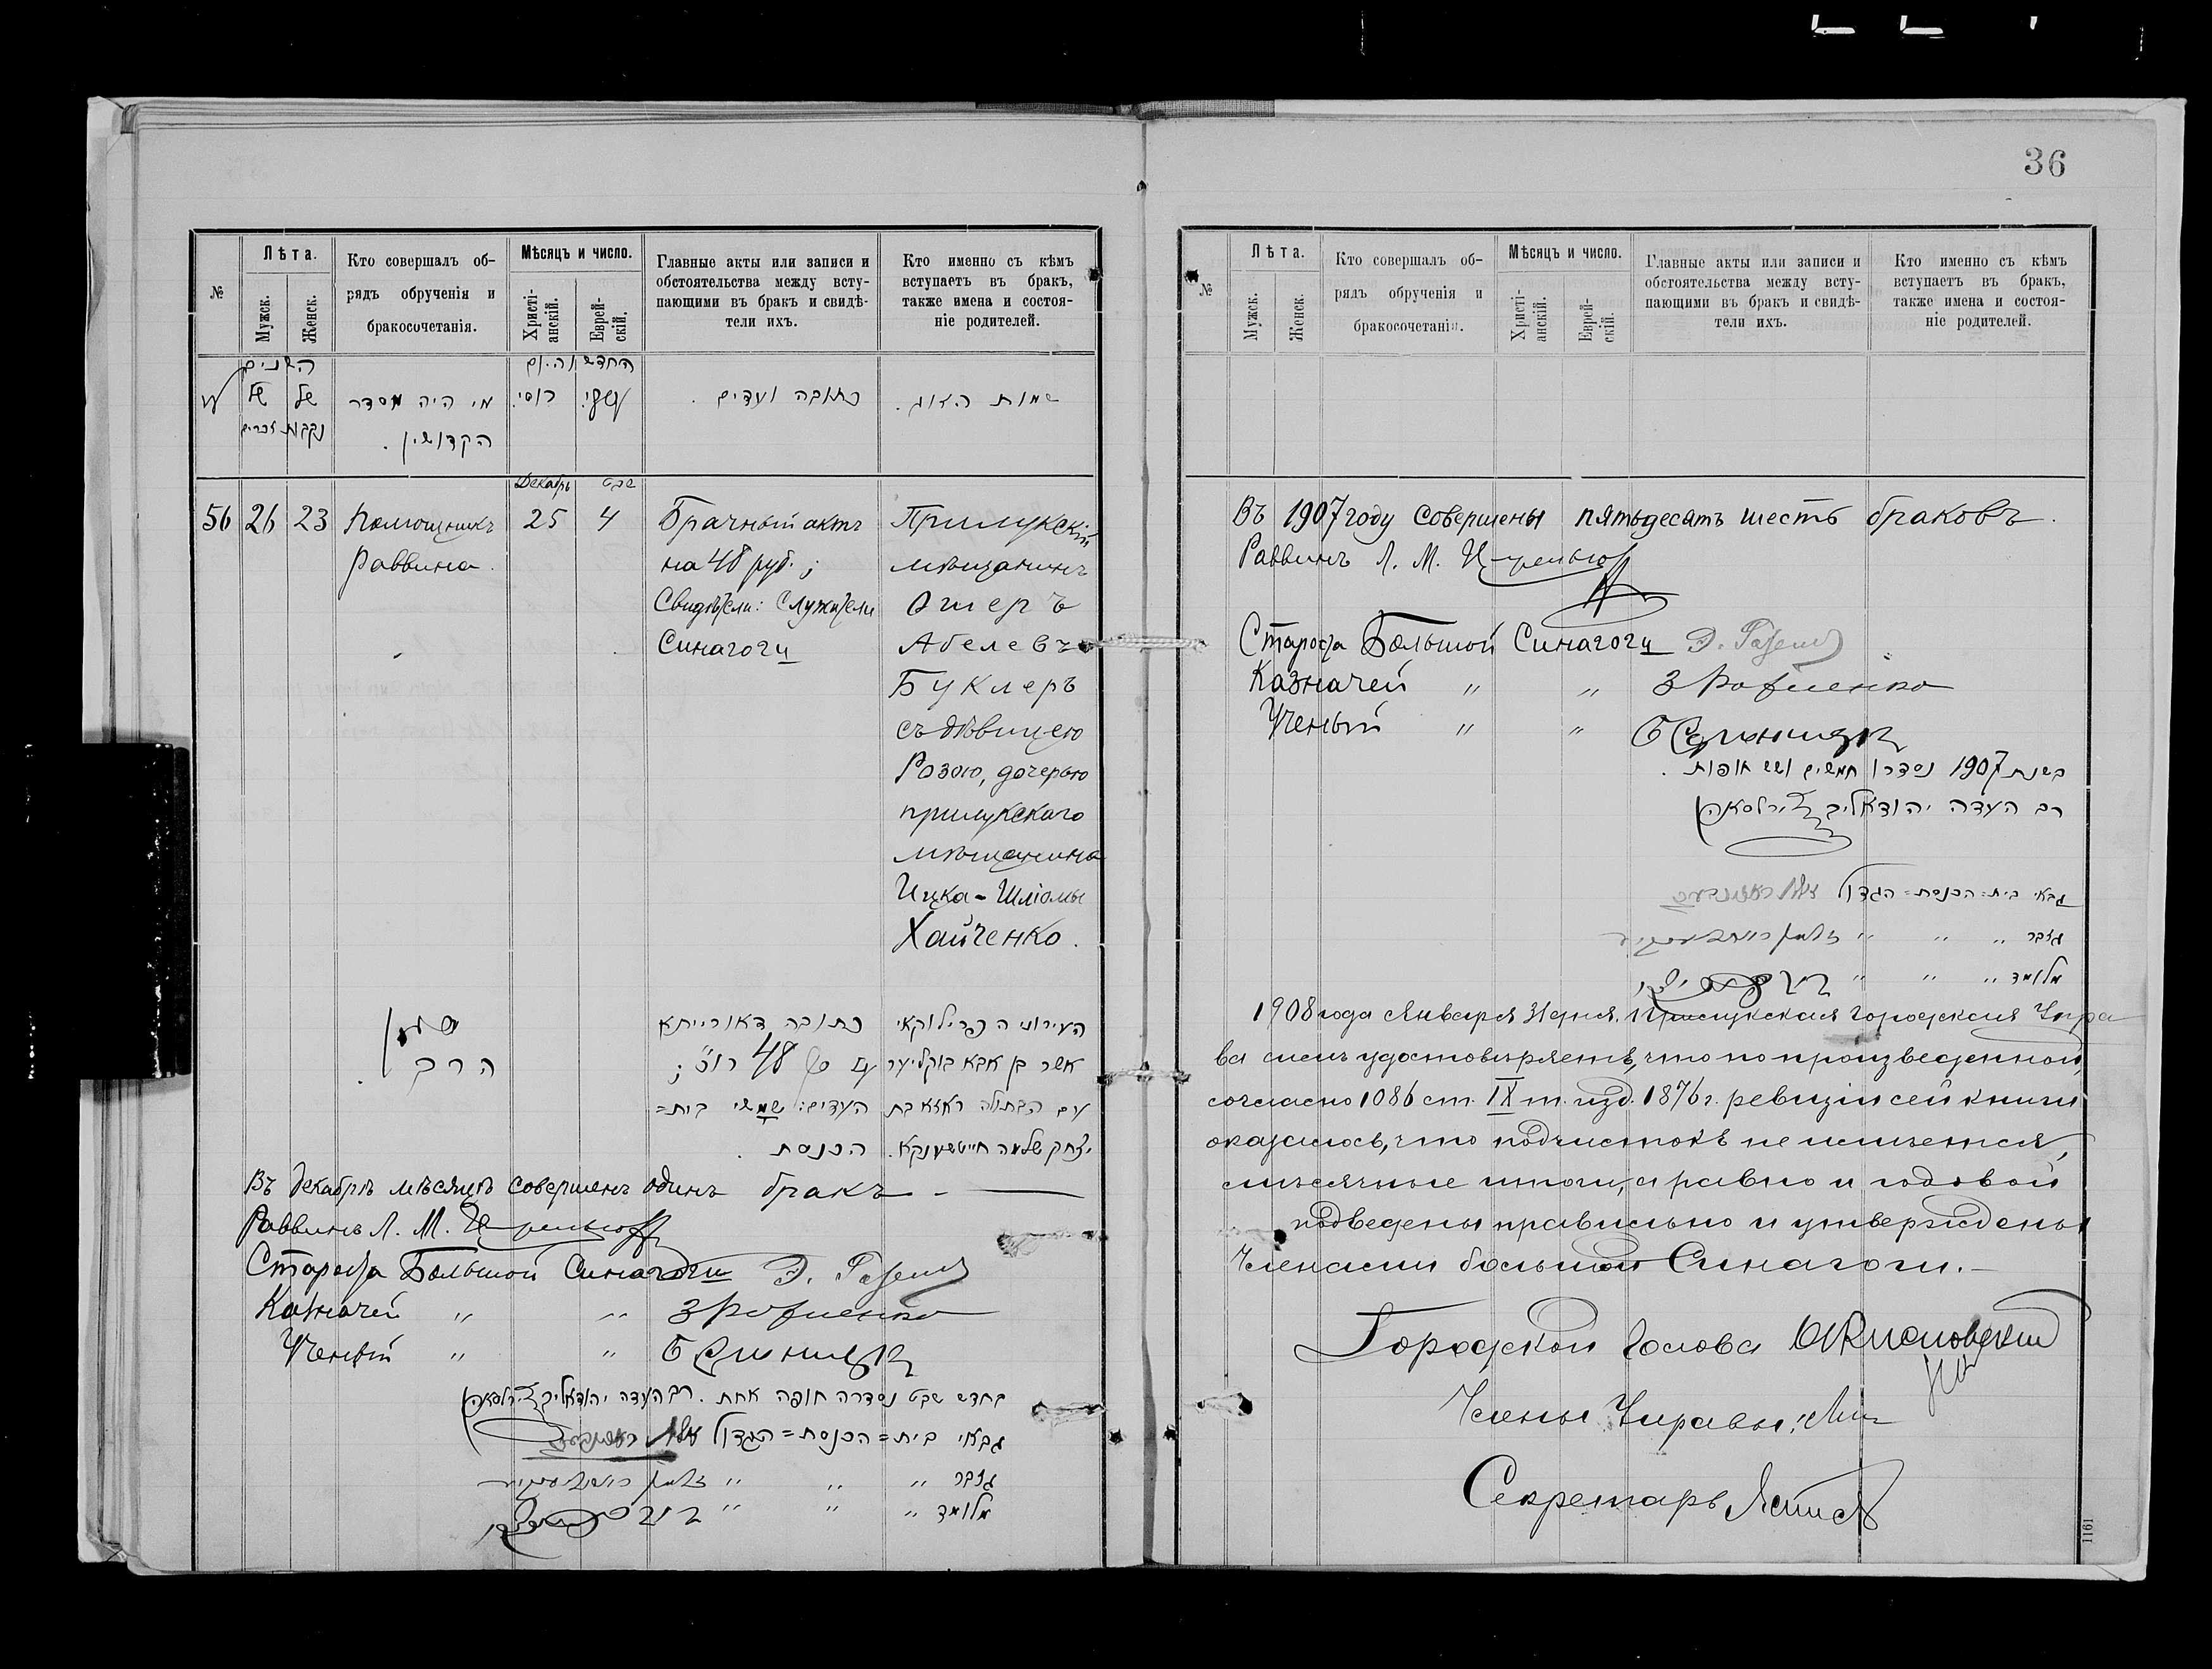 36
№
Лѣта.
Мужск.
Женск.
Кто совершалъ об-
рядъ обрученія и
бракосочетанія.
Мѣсяцъ и число.
Христі-
анскій.
Еврей-
скій.
Главные акты или записи и
обстоятельства между всту-
пающими въ бракъ и свидѣ-
тели ихъ.
Кто именно съ кѣмъ
вступаетъ въ бракъ,
также имена и состоя-
ніе родителей.
השנים
של
נקבות
של
זכרים
מי היה מסדר
הקדושין.
החדש והיום
רוסי.
כתובה ועדים.
שמות הזוג.
Декабрь
שבט
56
26
23
Помощникъ
Раввина.
25
4
Брачный актъ
на 48 руб.;
Свидѣтели: Служители
Синагоги
Прилукскій
мѣщанинъ
Ошеръ
Абелевъ
Буклеръ
съ дѣвицею
Розою, дочерью
прилукскаго
мѣщанина
Ицка-Шліомы
Хайченко.
הרב
כתובה דאורייתא
48 רו"כ;
העדים: שמשי בית=
הכנסת.
העירוני הפרילוקאי
אשר בן אבא בוקליער
עם הבתולה ראזא בת
יצחק שלמה חייטשענקא.
Въ декабрѣ мѣсяцѣ совершенъ одинъ бракъ
Раввинъ Л. М. Цирельсонъ
Староста Большой Синагоги
Казначей " "
Ученый " "
בחדש שבט נסדרה חופה אחת. רב העדה יהודא ליב צירלסאהן
גבאי בית=הכנסת=הגדול
גזבר " " "
מלומד " " "
№
Лѣта.
Мужск.
Женск.
Кто совершалъ об-
рядъ обрученія и
бракосочетанія.
Мѣсяцъ и число.
Христі-
анскій.
Еврей-
скій.
Главные акты или записи и
обстоятельства между всту-
пающими въ бракъ и свидѣ-
тели ихъ.
Кто именно съ кѣмъ
вступаетъ въ бракъ,
также имена и состоя-
ніе родителей.
Въ 1907 году совершены пятьдесятъ шесть браковъ.
Раввинъ Л. М. Цирельсонъ
Староста Большой Синагоги
Казначей " "
Ученый " "
בשנת 1907 נסדרו חמשים ושש חופות.
רב העדה יהודא ליב צירלסאהן
גבאי בית=הכנסת=הגדול
גזבר " " "
מלומד " " "
1908 года Января 31 дня. Прилукская Городская Упра
ва симъ удостовѣряетъ, что по произведенной,
согласно 1086 ст. IX т. изд. 1876 г. ревизіи сей книги
оказалось, что подчистокъ не имѣется,
мѣсячные итоги, а равно и годовой
подведены правильно и утверждены
Членами большой Синагоги.
Городской Голова
Члены Управы:
Секретарь
1161